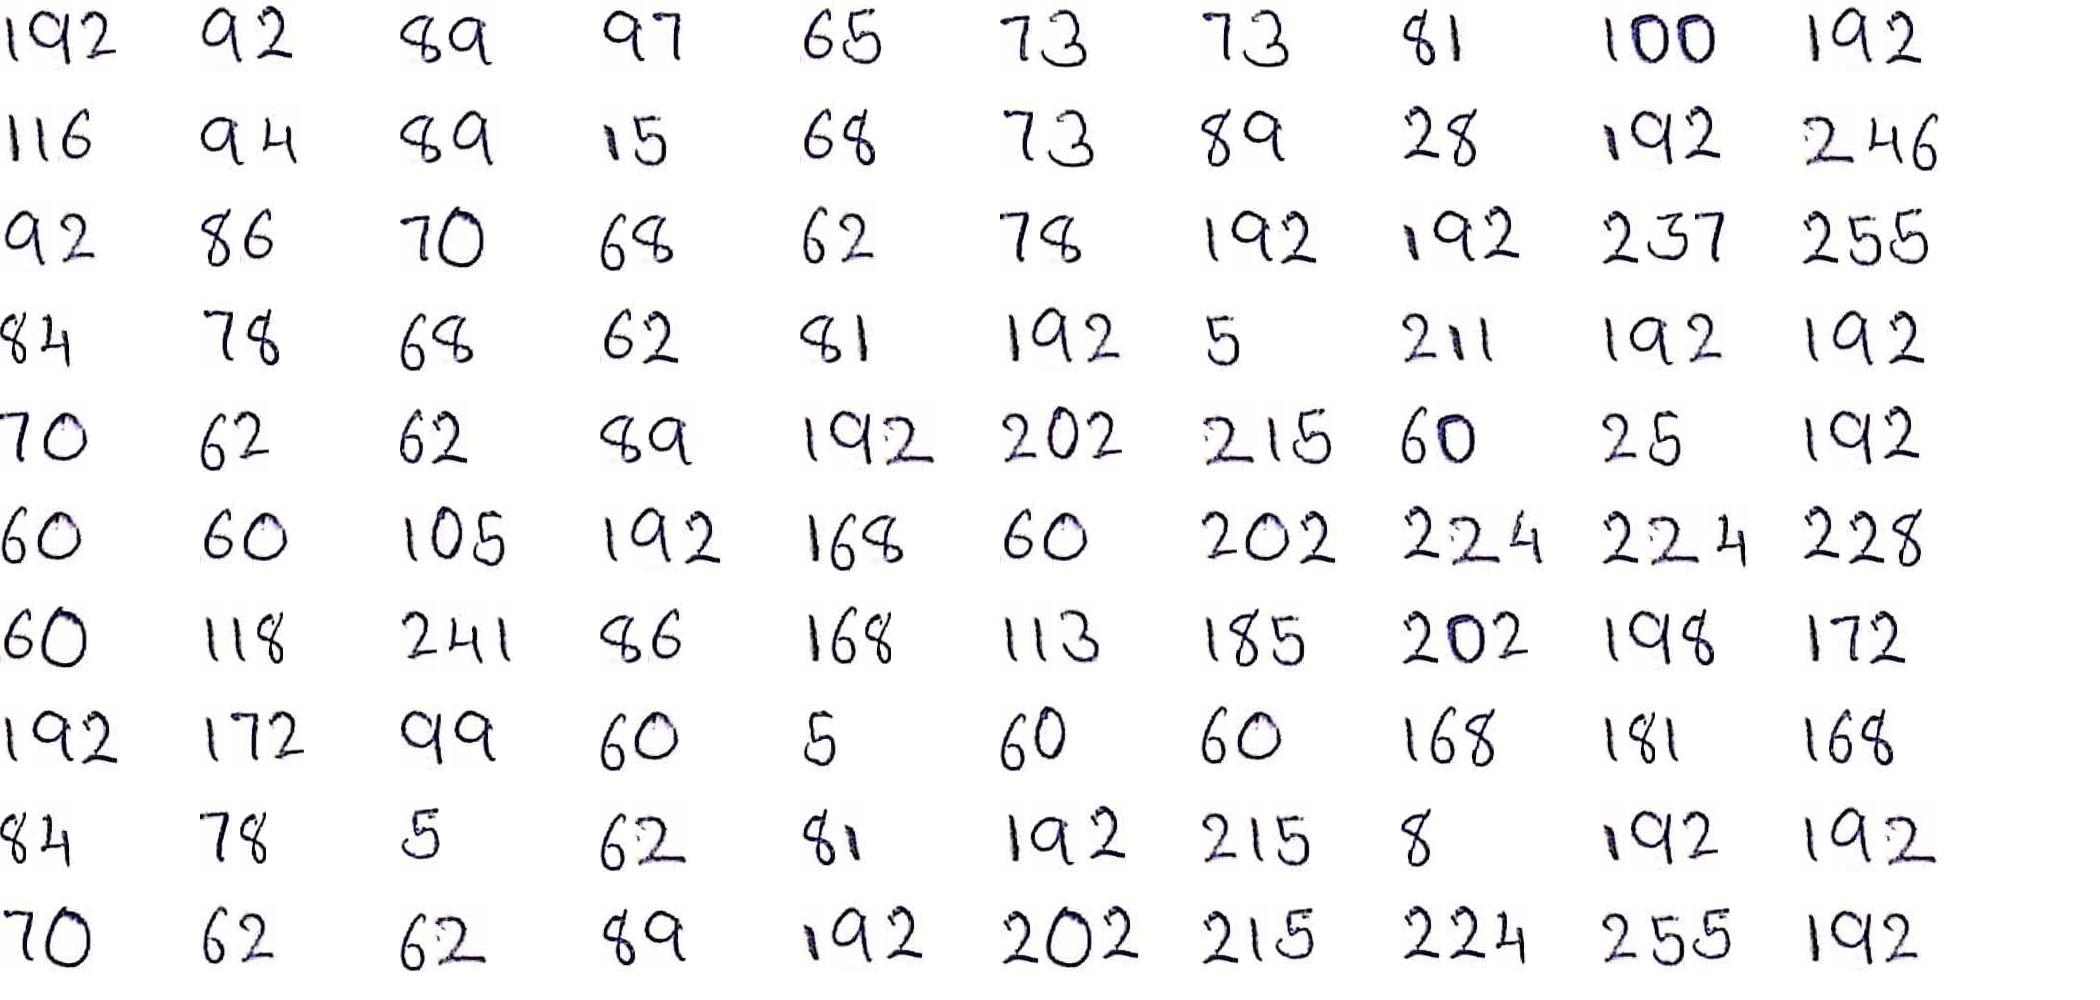 192 92 89 97 65 73 73 81 100 192
116 94 89 15 68 73 89 28 192 246
92 86 70 68 62 78 192 192 237 255
84 78 68 62 81 192 5 211 192 192
70 62 62 89 192 202 215 60 25 192
60 60 105 192 168 60 202 224 224 228
60 118 241 86 168 113 185 202 198 172
192 172 99 60 5 60 60 168 181 168
84 78 5 62 81 192 215 8 192 192
70 62 62 89 192 202 215 224 255 192